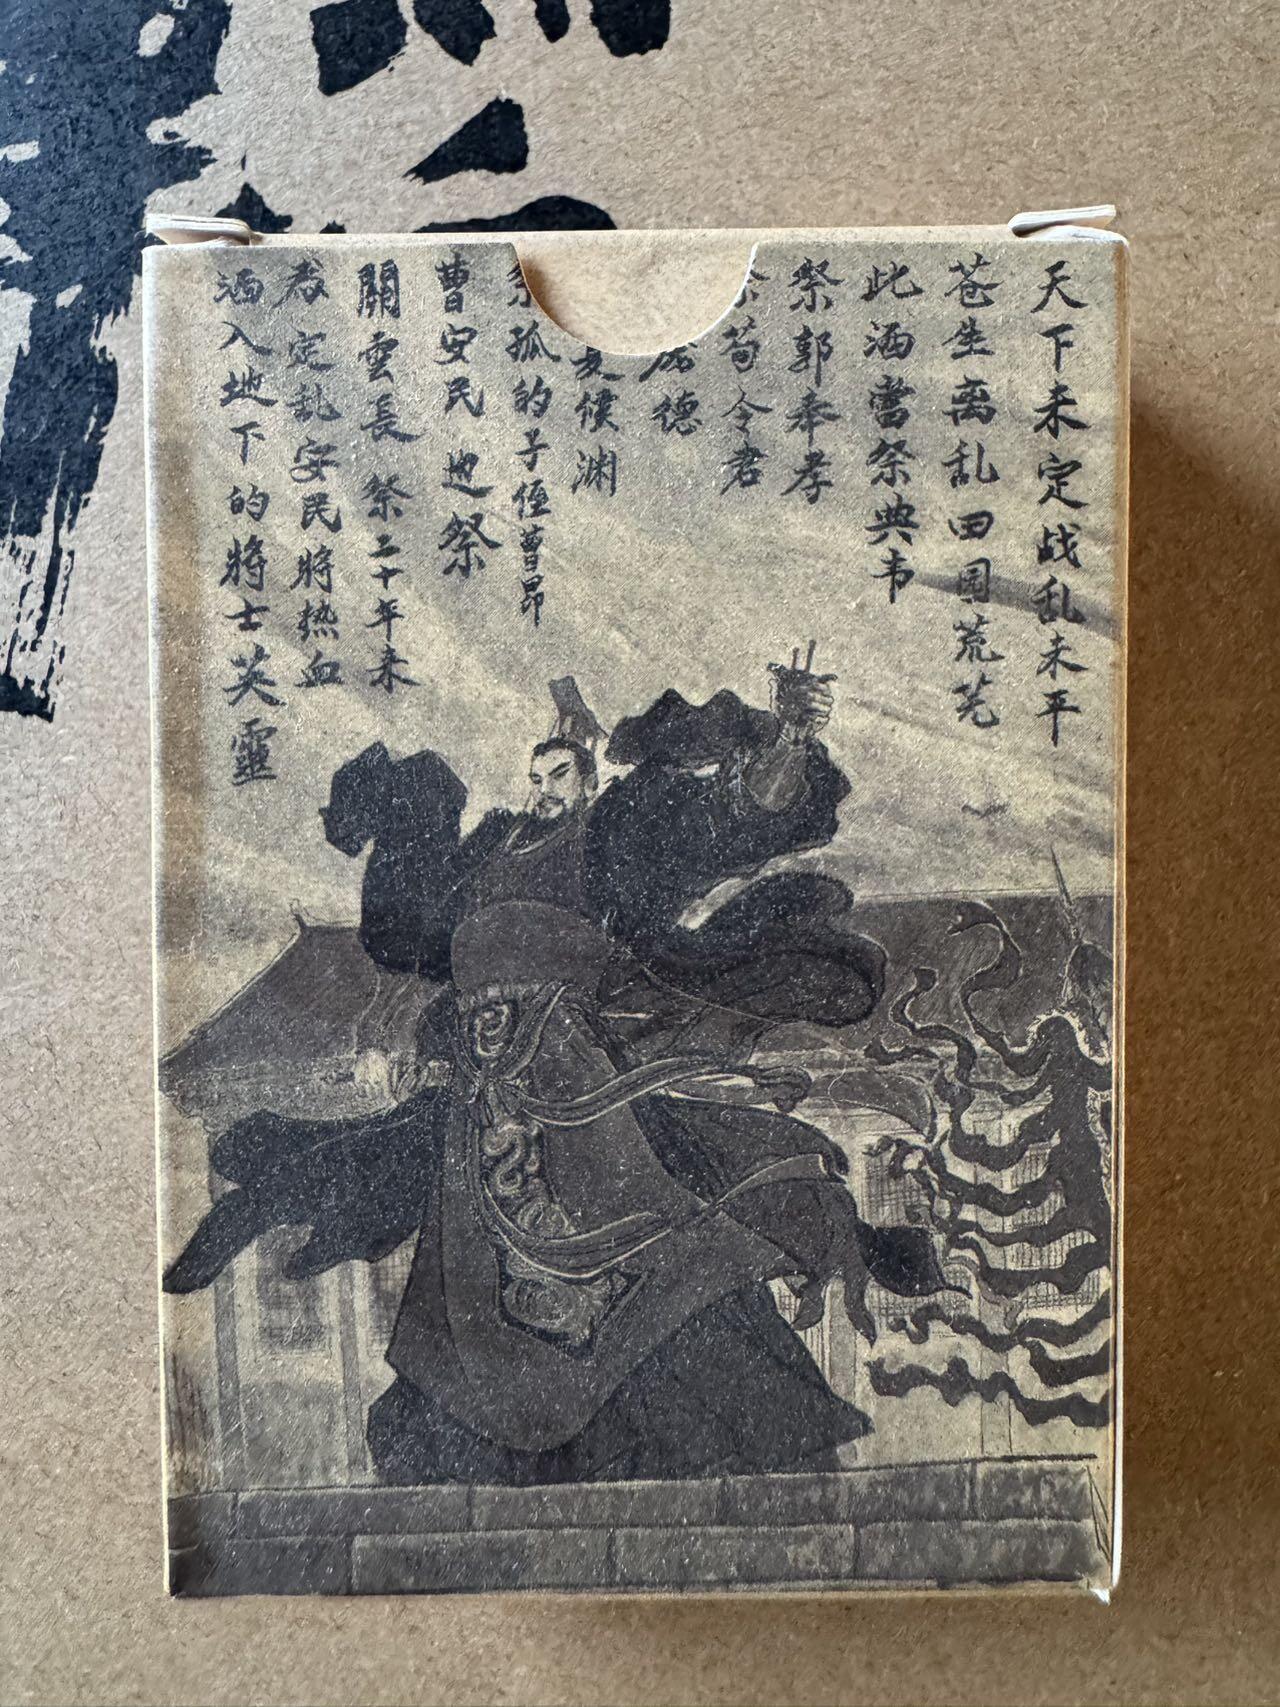 天下未定战乱未平
苍生离乱田园荒芜
此酒當祭典韦
祭郭奉孝
荀令君
德
候渊
孤的子侄曹昂
曹安民 也祭
關雲長 祭二十年来
定乱安民將热血
洒入地下的將士英靈